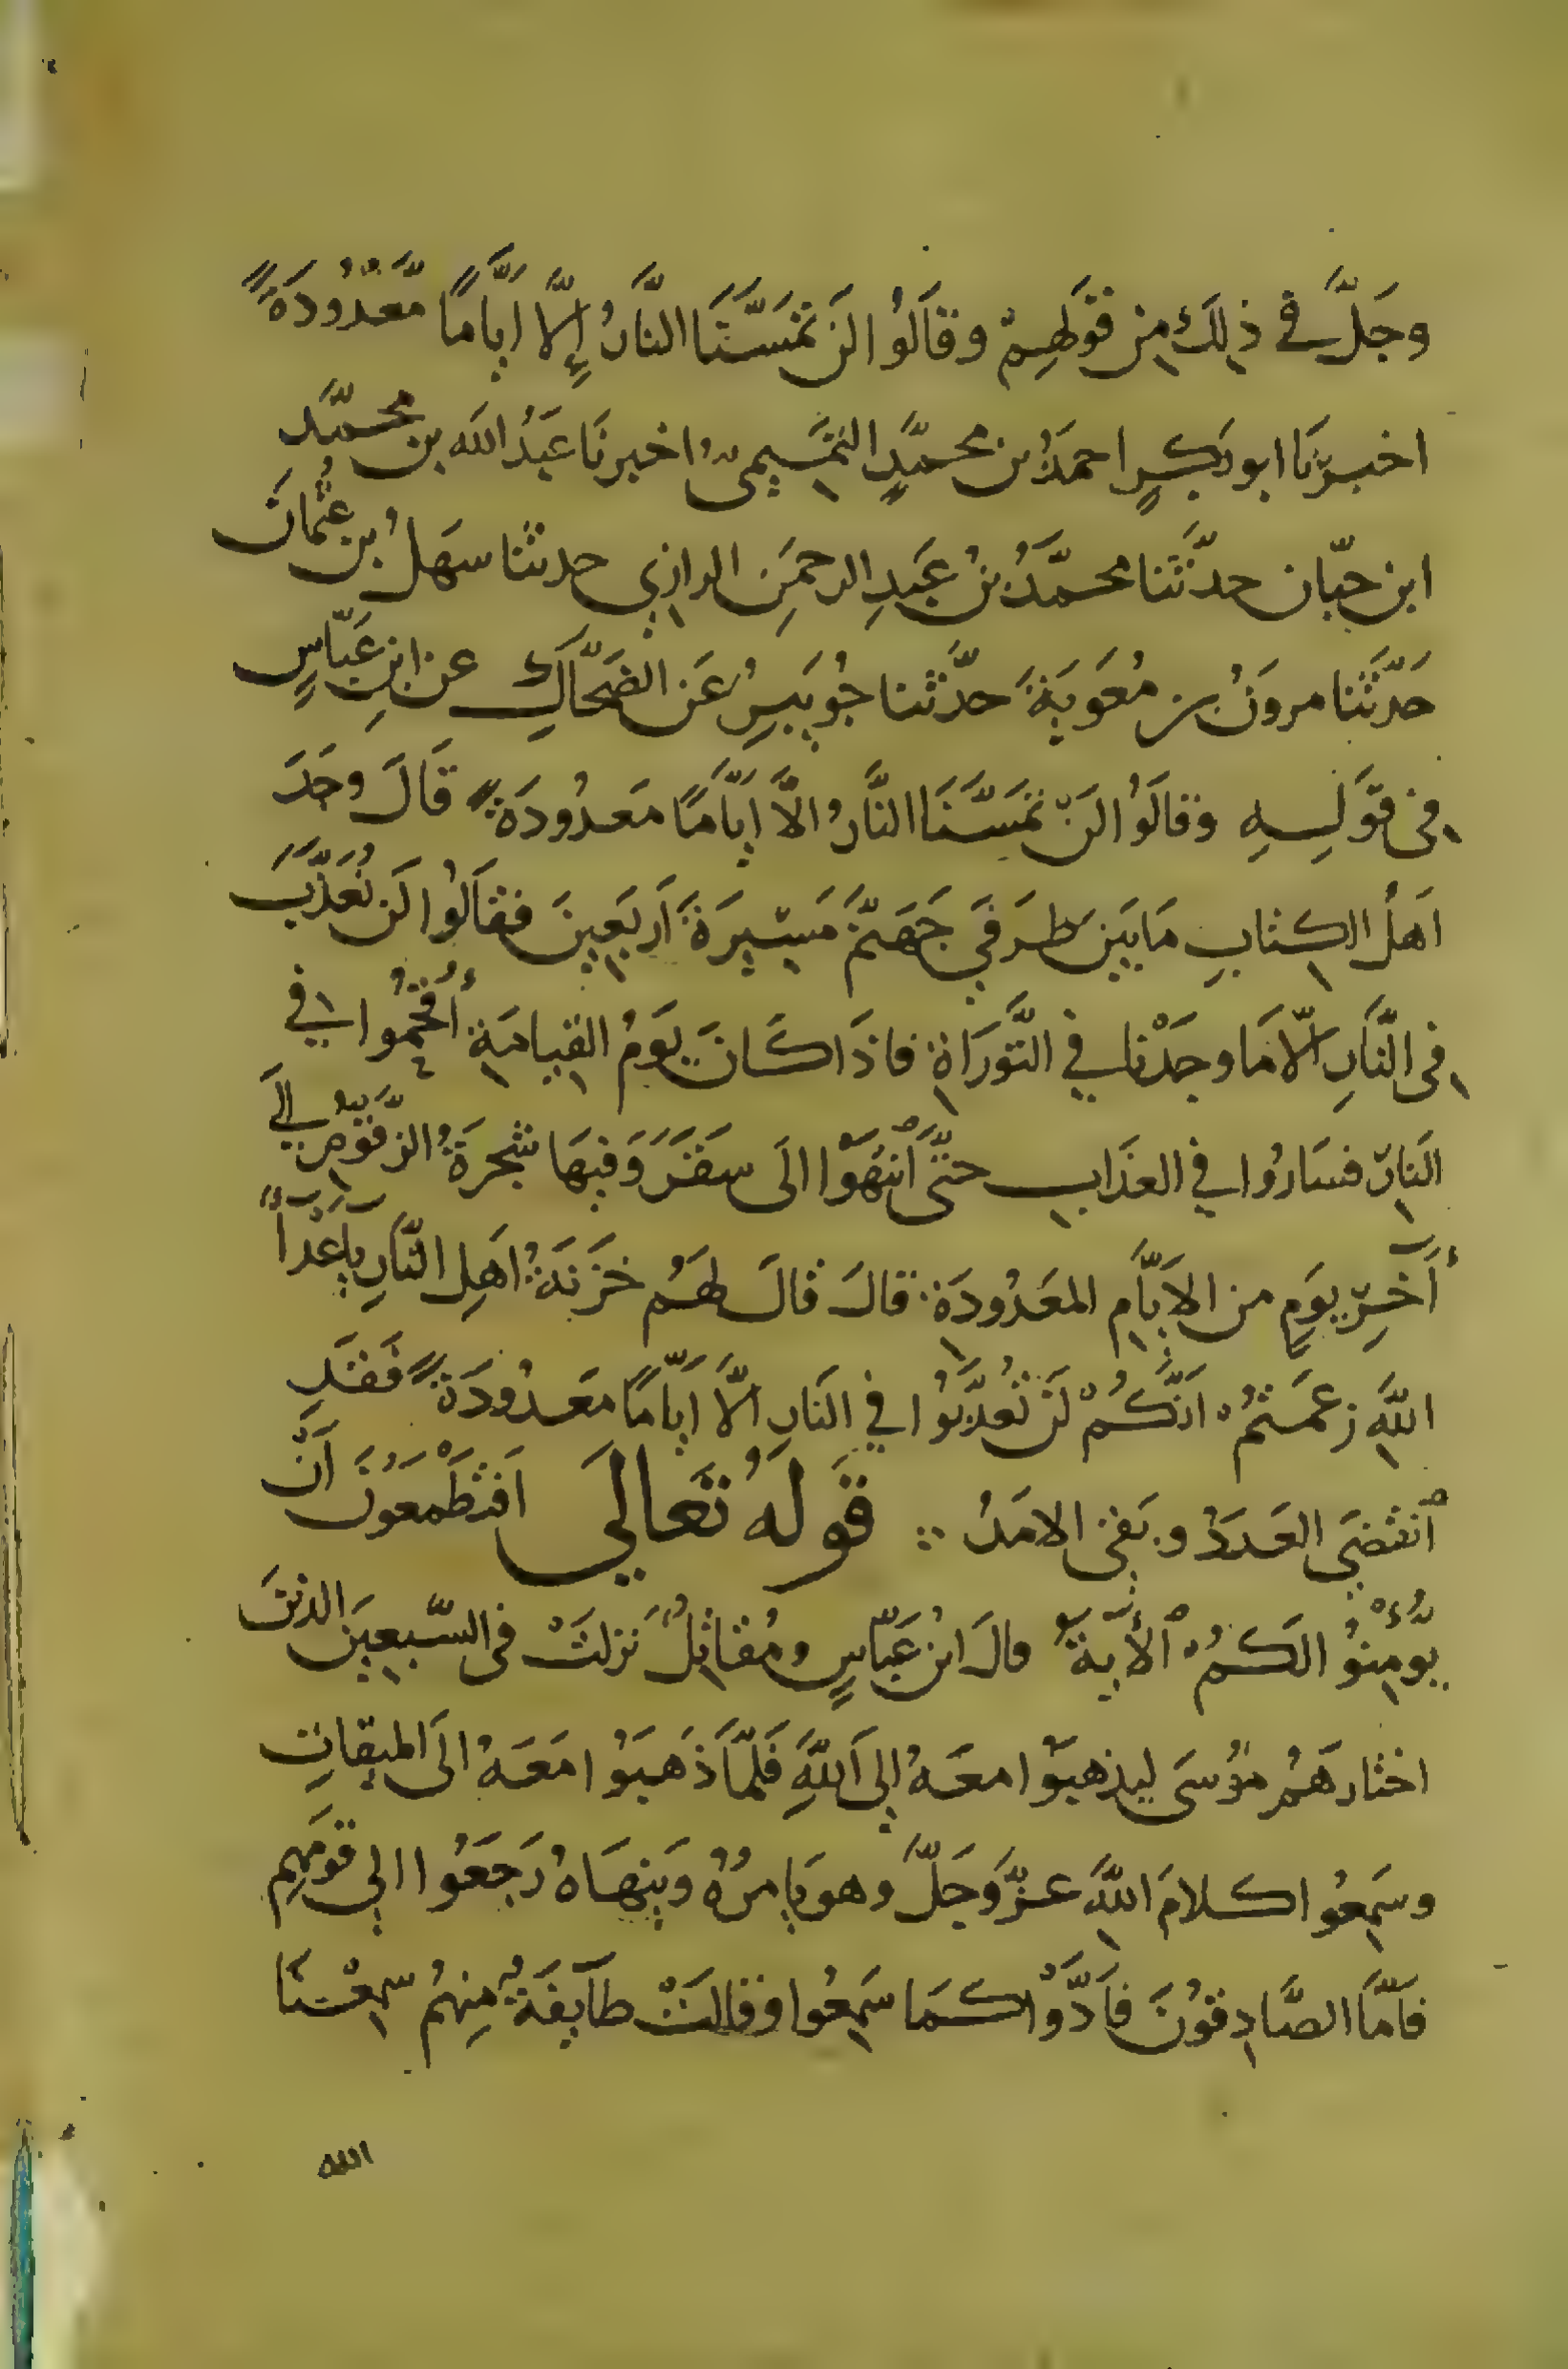 وَجَلَّ في ذٰلِكَ مِن قَوْلِهِمْ وقَالُوا لَن تَمَسَّنَا النَّارُ إِلَّا أَيَّامًا مَّعْدُودَةً
اخبرَنَا ابو بَكرٍ احمَدُ بن محمّدٍ التَّمِيميُّ اخبرنَا عَبْدُ الله بن محمّد
ابن حيّان حدَّثَنا محمَّدُ بنُ عَبدِ الرحمَنِ الرازِي حدثنا سَهْلُ بن عُثْمانَ
حَدَّثَنا مروَنُ بن مُعَوِيَةَ حدَّثنا جُوَيبِرُ عَن الضَحَّاكِ عن ابنِ عَبّاسٍ
في قَولِهِ وقالُوا لَنْ تَمَسَّنَا النَّارُ الَّا أَيَّامًا مَعْدُودَةً قَالَ وجَدَ
اَهلُ الكِتابِ مَا بَيْنَ طَرَفَي جَهَنَّمَ مَسِيرَةَ أَربَعِينَ فقَالُوا لَن نُعَذَّبَ
فِى النَّارِ الّا مَا وجَدْنا في التَّوْرَاةِ فاذَا كَانَ يَوْمُ القِيامَةِ أُقْحِمُوا في
النَارِ فسَارُوا في العذَابِ حتَّى اَنْتَهَوْا الَى سقَرَ وَفيهَا شَجرَةُ الزَّقّومِ إلَى
أَخِرِ يَومٍ من الاَيَّامِ المَعْدُودَةِ قالَ قالَ لهُم خَزَنَةُ اهَلِ النَّارِ يآ أَعْدَآءَ
اللَّهِ زعَمْتُمْ اَنَّكُمْ لَن تُعَذَّبُوا في النَارِ الَّا اَيّامًا مَعْدُودَةً فَقَدِ
اَنْقَضَى العَدَدُ وبَقِى الامَدُ قَولُه تَعالَى اَفَتَطْمَعُونَ اَنْ
يُّؤْمِنُوا لَكُمْ اَلْأٓيةَ قالَ ابنُ عَبّاسٍ ومُقاتِلُ نَزلَتْ فى السَّبعِينَ الذينَ
اختارَهُم مُوسَى ليذهبُوا معَهُ إلى اَللَّهِ فَلَمّا ذَهَبُوا مَعَهُ الَى المِيقَاتِ
وسَمِعُوا كلامَ اللَّهِ عزَّ وَجَلَّ وهو يَامرُهُ وَينهَاهُ رَجَعُوا الي قومِهِم
فاَمَّا الصَّادِقُونَ فاَدَّوْا كمَا سَمِعُوا وقالَتْ طَآيفَةٌ مِنهُم سمِعْنَا
الله